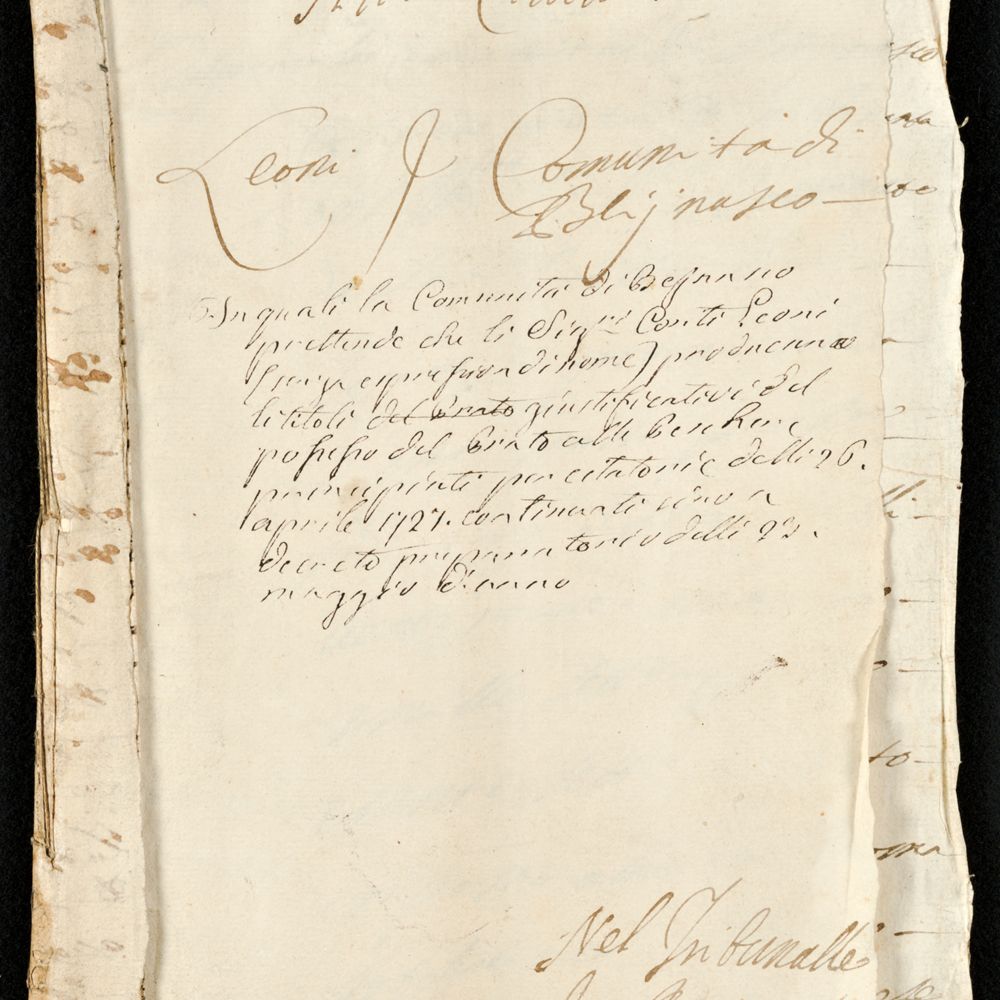 Leoni
Comunità di
Beijnasco
In quali la Comunità di Bejnasco
prettende che li Sig.ri Conti Leoni
(senza espressione di nome) producano
li titoli del Prato giustificativi del
possesso del Prato alle Peschere
principiati per citatorie delli 26.
aprile 1727. continuati sino a
decreto preparatorio delli 23.
maggio d'anno
Nel Tribunalle